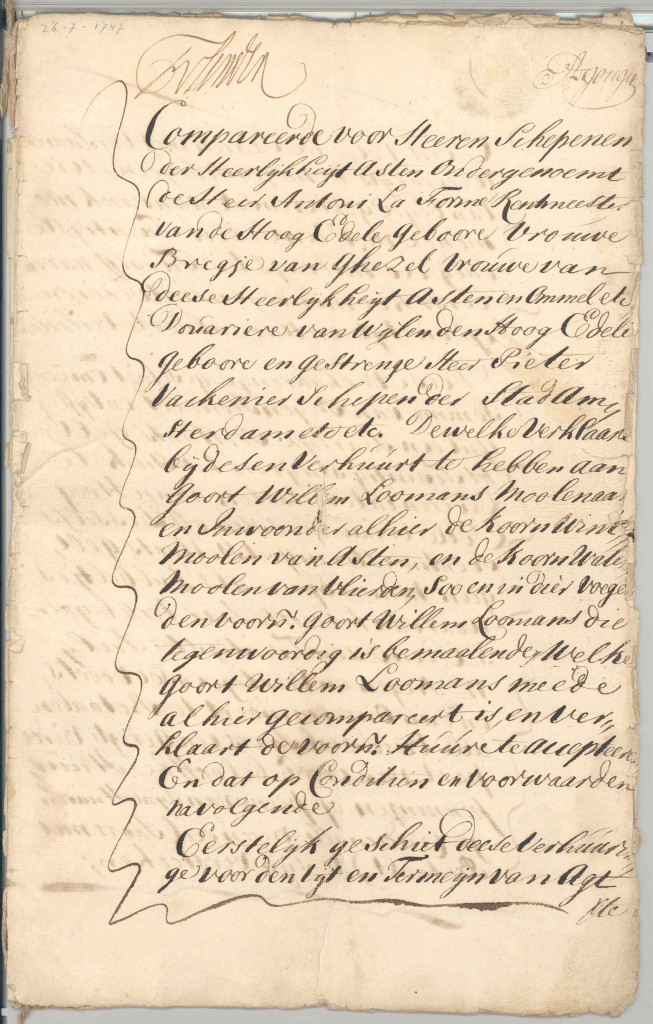 26-7-1747
Compareerde voor Heeren Schepenen
der Heerlijkheijt Asten Ondergenoemt
de Heer Antoni La Forme Rentmeester
van de Hoog Edele geboore Vrouwe
Bregje van Ghezel Vrouwe van
deese Heerlijkheijt Asten en Ommel etc
Douariere van Wylen den Hoog Edele
geboore en gestrenge Heer Pieter
Vackenier Schepen der Stad Am,,
sterdam etc etc. Dewelke Verklaar
bij desen Verhuurt te hebben aan
Goort Willem Loomans Moolenaar
en Inwoonder alhier de Koorn Wind
Moolen van Asten, en de Koorn Water
Moolen van Vlierden, Soo en in dier voege
den voorn:r Goort Willem Loomans die
tegenwoordig is bemaalende, Welke
Goort Willem Loomans meede
alhier gecompareert is, en ver,,
klaart de voorn:r Huure te accepteer
En dat op Conditien en voorwaarden
navolgende
Eerstelijk geschiet deese Verhuur,,
ge voor den tijt en Termeijn van Agt